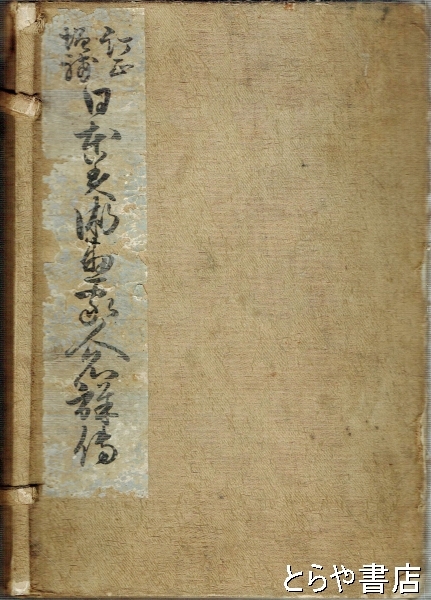 訂正
増補
日本美術畫家人名詳傳
とらや書店